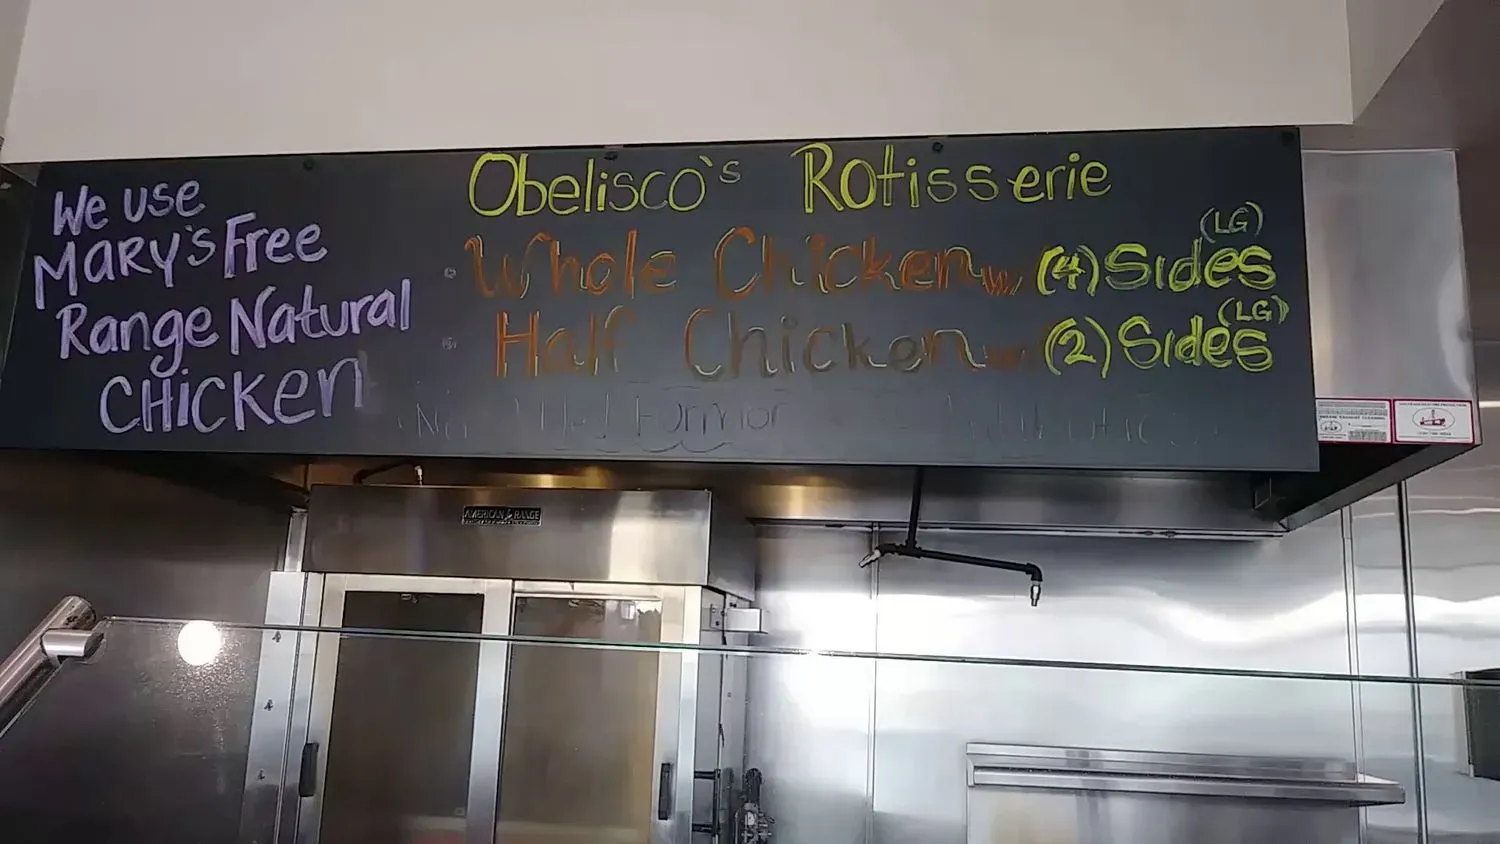 We use
MARY's Free
Range Natural
CHicKen
Obelisco's Rotisserie
Whole Chicken w/ (4) Sides (LG)
Half Chicken w/ (2) Sides (LG)
AMERICAN RANGE